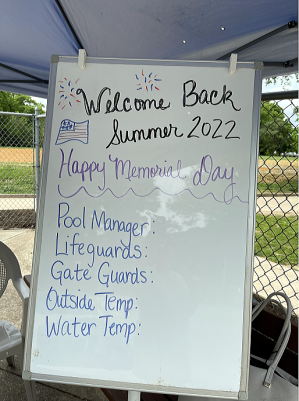 Welcome Back
Summer 2022
Happy Memorial Day
Pool Manager:
Lifeguards:
Gate Guards:
Outside Temp:
Water Temp: